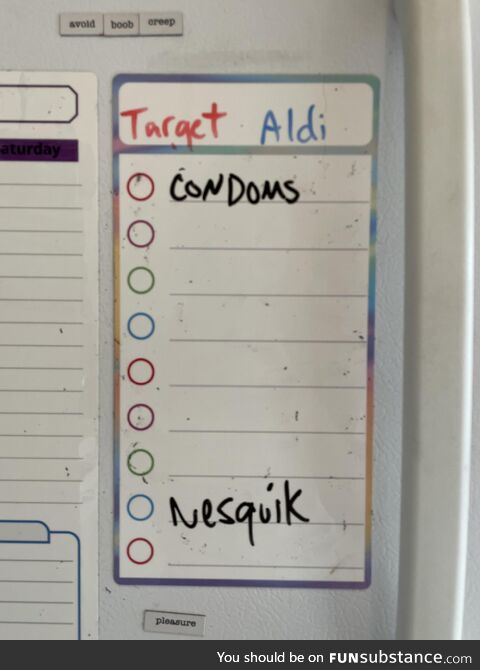 avoid boob creep
Target Aldi
aturday
CONDOMS
Nesquik
pleasure
You should be on FUNsubstance.com